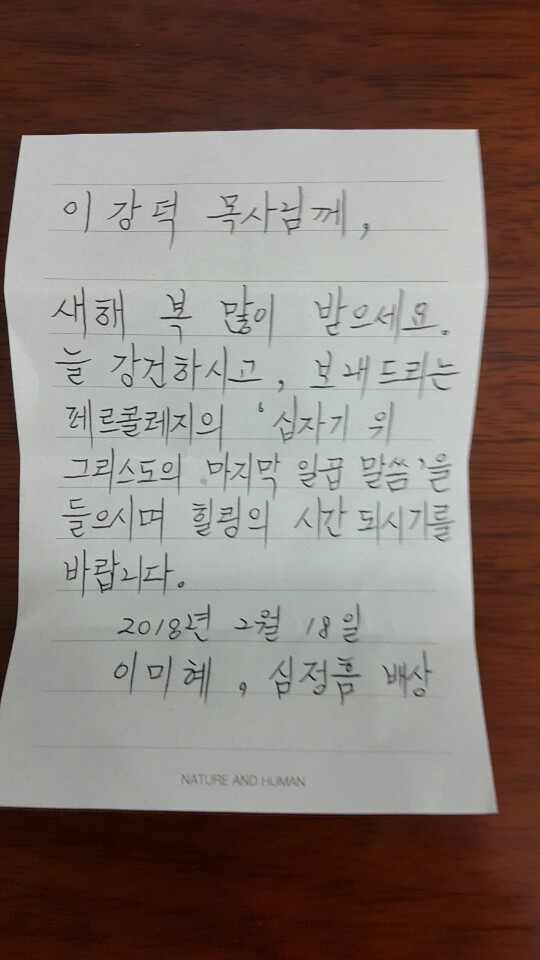 이강덕 목사님께,
새해 복 많이 받으세요.
늘 강건하시고, 보내드리는
페르골레지의 '십자가 위
그리스도의 마지막 일곱 말씀'을
들으시며 힐링의 시간 되시기를
바랍니다.
2018년 2월 18일
이미혜, 심정흠 배상
NATURE AND HUMAN